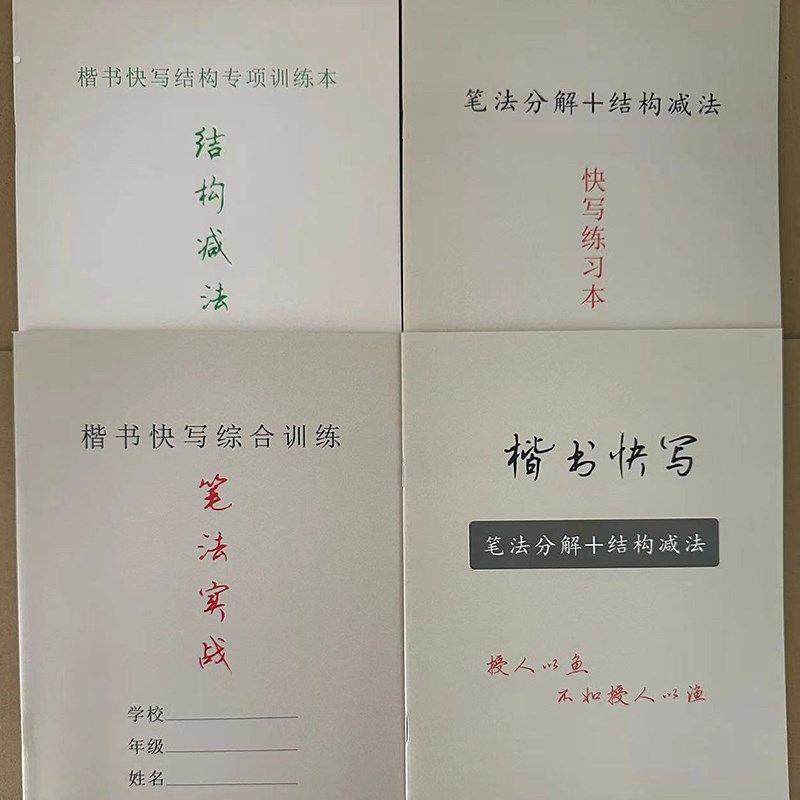 楷书快写结构专项训练本
结构减法
笔法分解+结构减法
快写练习本
楷书快写综合训练
笔法实战
学校
年级
姓名
楷书快写
笔法分解+结构减法
授人以鱼
不如授人以渔